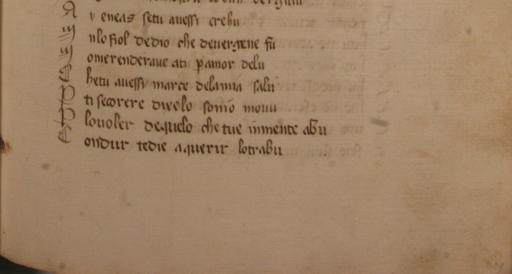 A v eneas setu auessi crehu
N nlo fiol dedio che deuergene fu
M omerenderaue ati pamor delu
E hetu auessi marce delamia salu
P ti secorere diuelo somo mouu
P louoler dequelo che tue inmente abu
C ondur tedie aquerir lotrabu